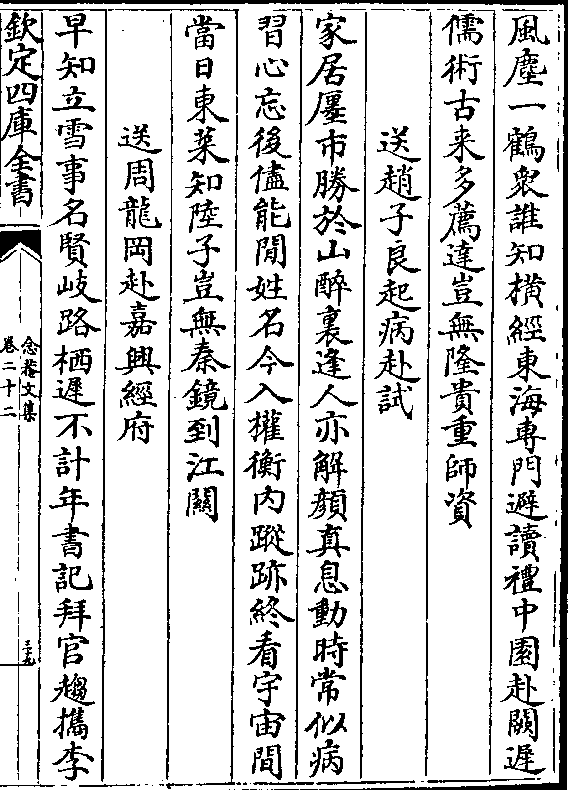 風塵一鶴衆誰知橫經東海專門避讀禮中園赴闕遲
儒術古来多薦達豈無隆貴重師資
送趙子良起病赴試
家居廛市勝於山醉裏逢人亦解顔真息動時常似病
習心忘後儘能閒姓名今入權衡内蹤跡終看宇宙間
當日東萊知陸子豈無秦鏡到江關
送周龍岡赴嘉興經府
早知立雪事名賢岐路栖遲不計年書記拜官趨攜李
欽定四庫全書
念菴文集
卷二十二
三十九